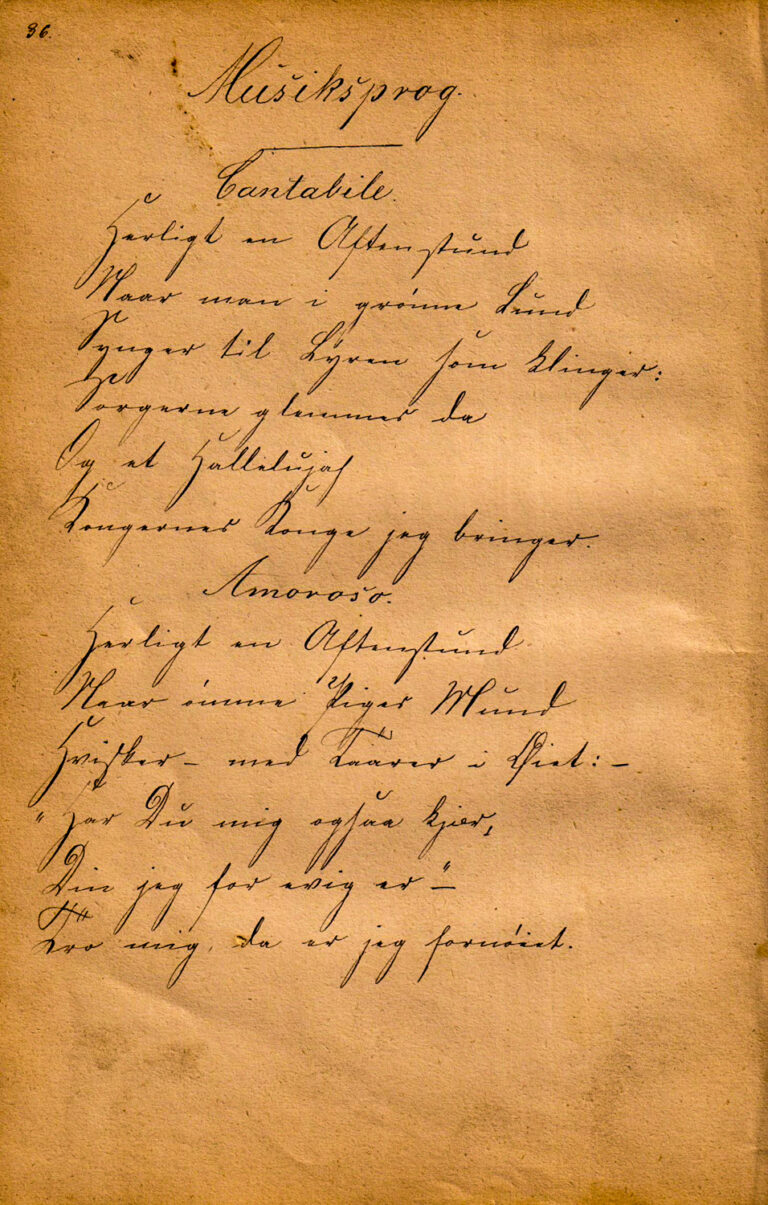 36.
Musiksprog.
Cantabile.
Herligt en Aftenstund
Naar man i grønne Lund
Synger til Lyren som klinger:
Sorgerne glemmes da
Og et Hallelujah
Kongernes Konge jeg bringer.
Amoroso.
Herligt en Aftenstund
Naar ømme Pigers Mund
Hvisker – med Taarer i Øiet: –
"Har Du mig ogsaa kjær,
Din jeg for evig er" –
Tro mig, da er jeg fornøiet.